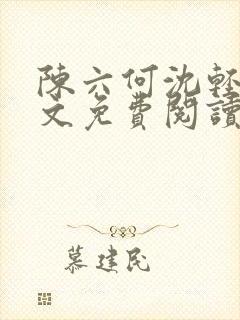 陳六何沈輕
文免費閱讀
慕建民